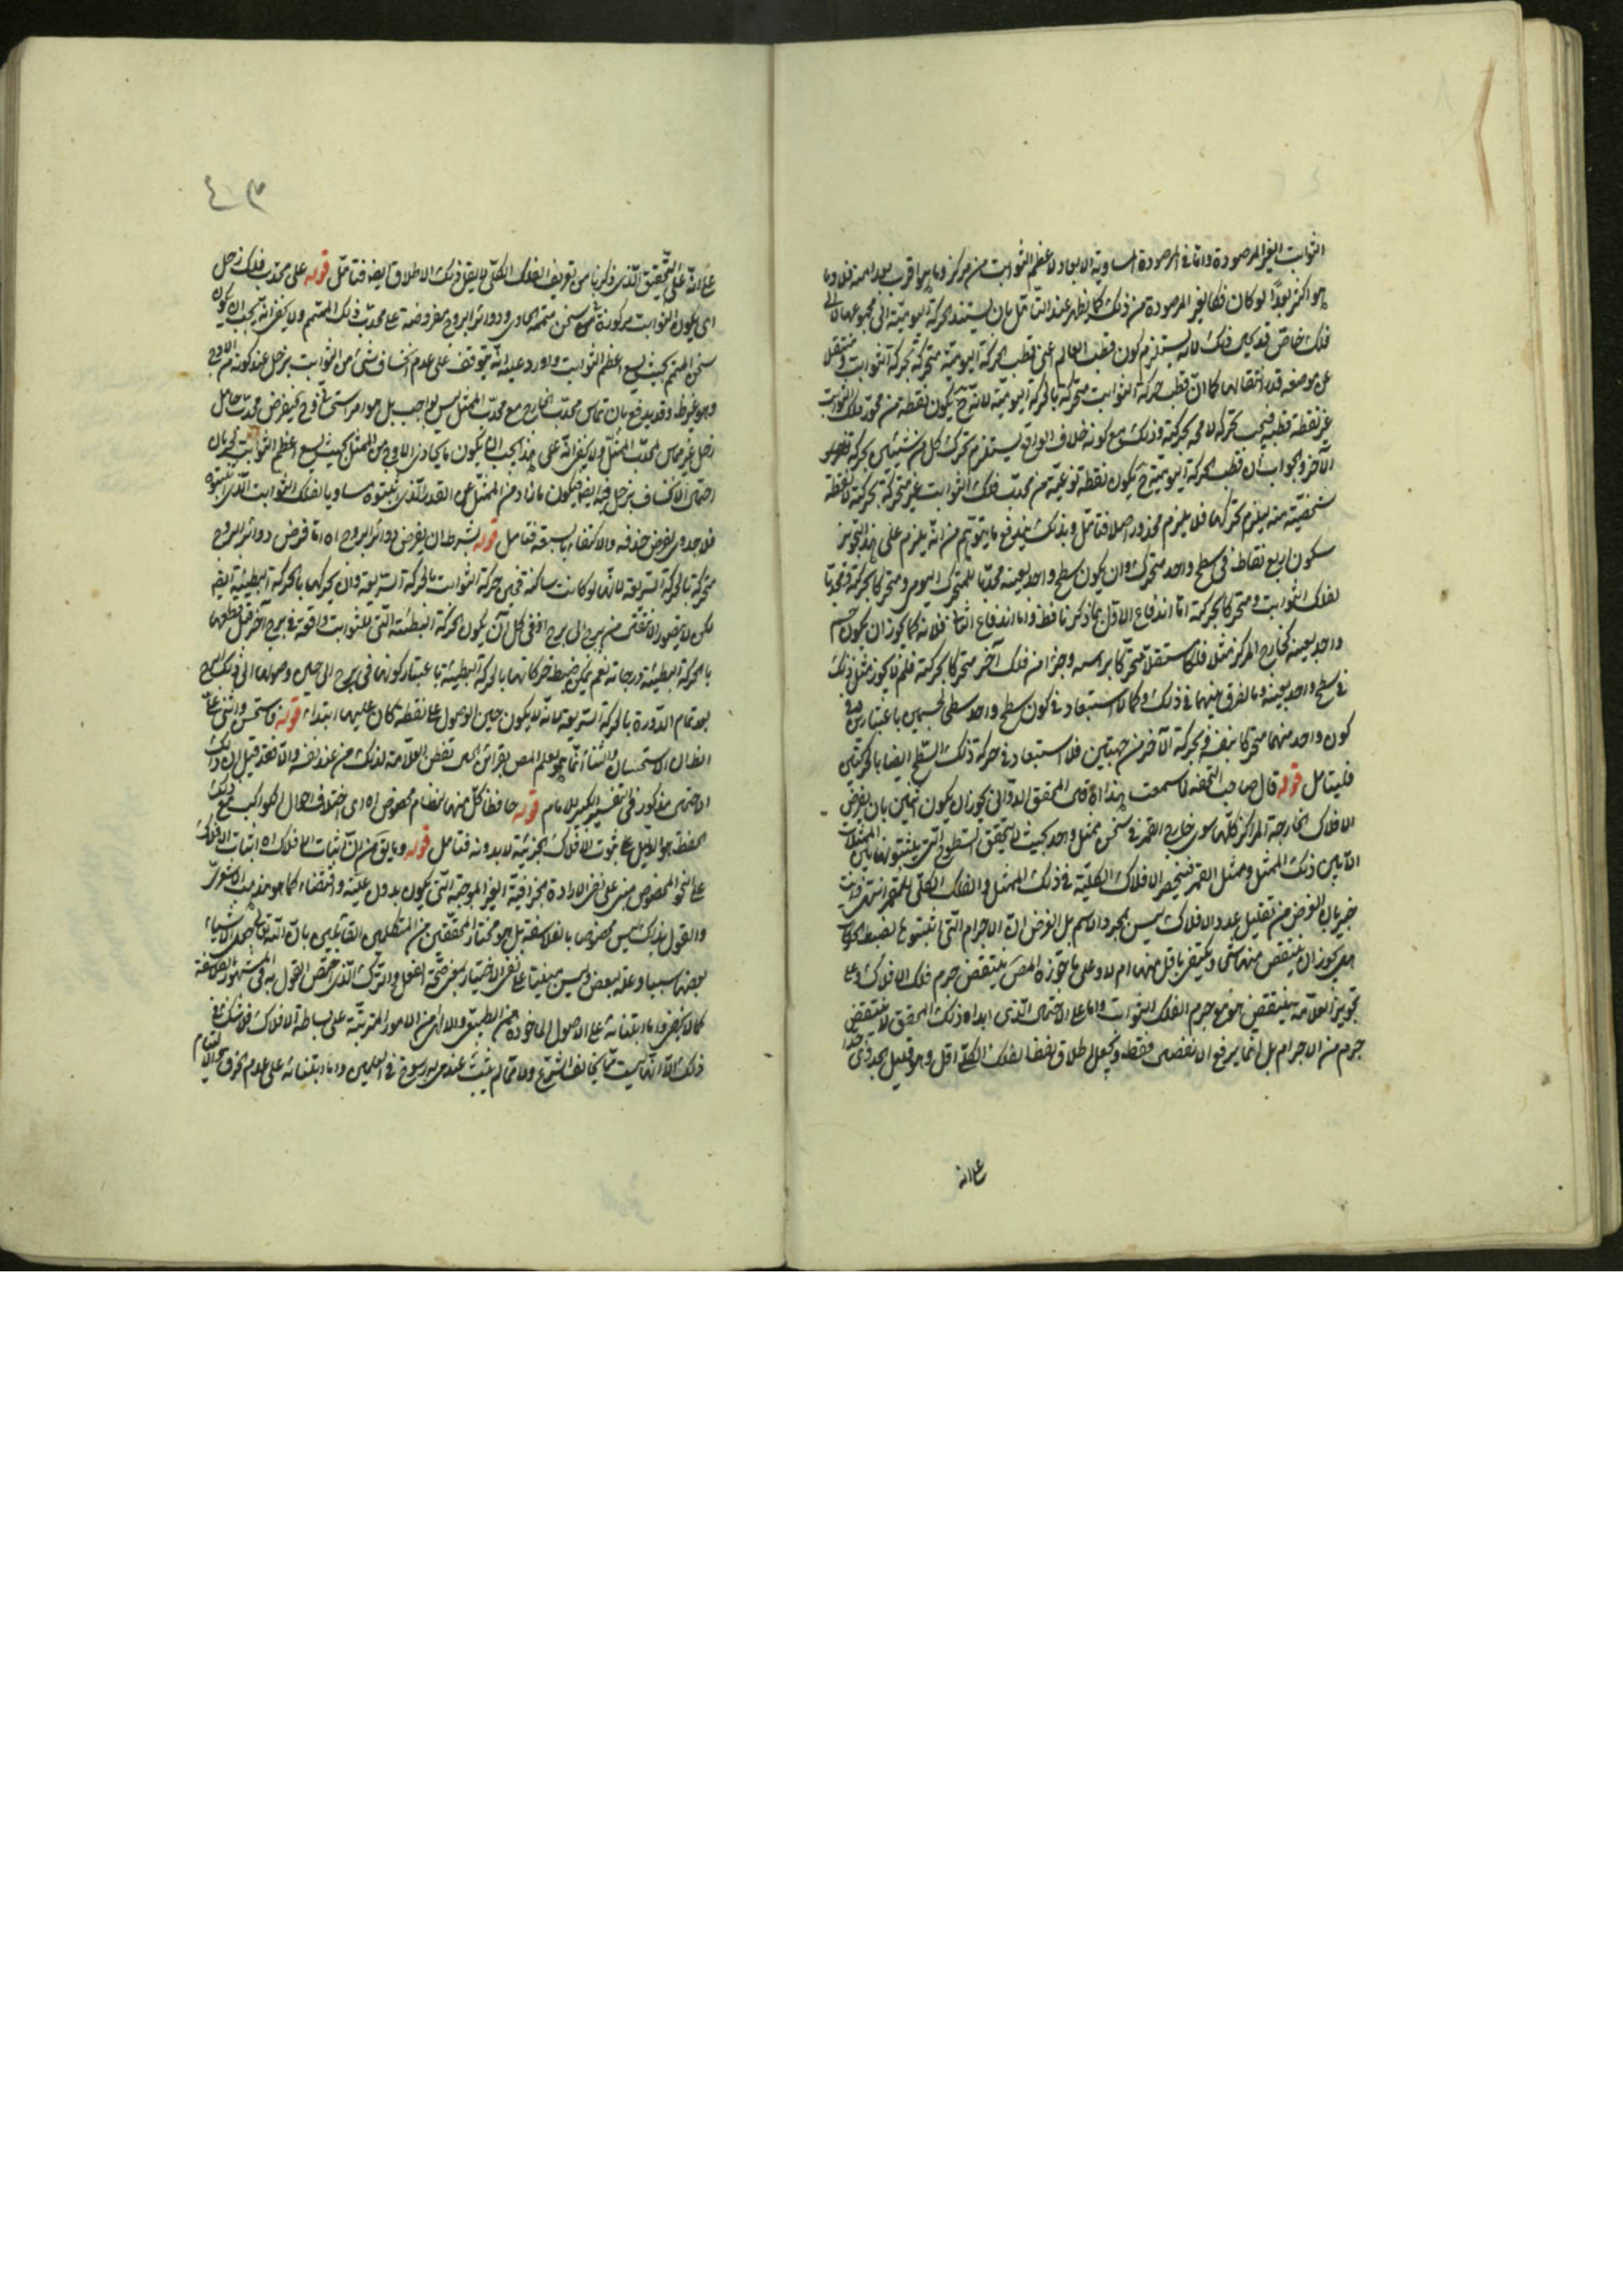 الثوابت الغير المرصودة واما في المرصودة المساوية الابعاد لاعظم الثوابت من مركز وما هو اقرب بعدا منه فلا وما
هو اكثر بعدا لو كان فكالغير المرصودة من ذلك كما يظهر عند التأمل بان يستند الحركة اليومية الى مجموعها لا الى
فلك خاص قد يحكى ذلك لانه يستلزم كون قطب العالم اعنى قطب الحركة اليومية متحركة بحركة الثوابت ومنتقلا
عن موضعه قدر انتقالها كما ان قطب حركة الثوابت متحركة بالحركة اليومية لانه ح يكون نقطة من محدب فلك الثوابت
غير نقطة قطبه فيجب تحركه لا محه بحركته وذلك مع كونه خلاف الواقع يستلزم تحرك كل من شيئين بحركة
الآخر والجواب ان قطب الحركة اليومية ح يكون نقطة نوعية من محدب فلك الثوابت غير متحركة بحركته لا نقطة
شخصية منه يلزم تحركها فلا يلزم محذور اصلا فتأمل وبذلك يندفع ما يتوهم من انه يلزم على هذا التجويز
سكون اربع نقاط في سطح واحد متحرك وان يكون سطح واحد بعينه محدبا للمتحرك اليومى ومتحركا بحركته ومحدبا
لفلك الثوابت ومتحركا بحركته اما اندفاع الاول بما ذكرنا فظ واما اندفاع الثانى فلانه كما يجوز ان يكون جسم
واحد بعينه كخارج المركز مثلا فلكا مستقلا متحركا براسه وجزا من فلك آخر متحركا بحركته فلم لا يجوز مثل ذلك
في سطح واحد بعينه وما الفرق بينهما في ذلك وكما لا استبعاد في كون سطح واحد سطحى لجسمين باعتبارين
كون واحد منهما متحركا بنفسه وبحركة الآخر من جهتين فلا استبعاد في حركة ذلك السطح ايضا بالحركتين
فليتأمل قوله قال صاحب التحفه لما سمعت هذا اه قال المحقق الدوانى يجوز ان يكون ثمانين بان يفرض
الافلاك الخارجة المراكز كلها سوى خارج القمر في ثخن ممثل واحد بحيث لا يتحقق السطوح التى يثبتونها بين الممثلات
الا بين ذلك الممثل وممثل القمر فينحصر الافلاك الكلية في ذلك الممثل والفلك الكلى للقمر انتهى وانت
خبير بان الغرض من تقليل عدد الافلاك ليس مجرد الاسم بل الغرض ان الاجرام التى اثبتوها لضبط الحركات
هل يجوز ان ينتقص منها شى ويكتفى باقل منها ام لا وعلى ما جوزه المص ينتقص جرم فلك الافلاك وعلى
تجويز العلامه ينتقص هو مع جرم الفلك الثوابت واما على الاحتمال الذى ابداه ذلك المحقق لا ينتقص
جرم من الاجرام بل انما يرفع الانفصال فقط ويجعل اطلاق لفظ الفلك الكلى اقل وهو قليل الجدوى جدا
على انه
على انه على التحقيق الذى ذكرنا من تعريف الفلك الكلى لا يقل ذلك الاطلاق ايضه فتأمل قوله على محدب فلك زحل
اى يكون الثوابت مركوزة في ثخن متممه الحاوى ودوائر البروج مفروضة على محدب ذلك المتمم ولا يخفى انه يجب ان يكون
ثخن المتمم بحيث يسع اعظم الثوابت واورد عليه انه يتوقف على عدم انكساف شئ من الثوابت بزحل عند كونه في الاوج
وهو غير ظ وقد يدفع بان تماس محدب الخارج مع محدب الممثل ليس بواجب بل هو امر استحسانى فليفرض محدب حامل
زحل غير مماس لمحدب الممثل ولا يخفى انه على هذا يجب ان يكون ما يحاذى الاوج من الممثل بحيث يسع اعظم الثوابت لجريان
احتمال الانكساف بزحل فيه ايضا فيكون ما زاد من الممثل على القدر الذى يثبتوه مساويا لفلك الثوابت الذى اثبتوه
فلا جدوى لفرض حذفه والاكتفاء بسبعة فتأمل قوله بشرط ان يفرض دوائر البروج اه اما فرض دوائر البروج
متحركة بالحركة السريعة لانها لو كانت ساكنة فحين حركة الثوابت بالحركة السريعة وان يحركها بالحركة البطيئة ايضه
لكن لا يتصور الانتقال من برج الى برج اذ في كل آن يكون الحركة البطيئة التى للثوابت واقعة في برج آخر قبل قطعها
بالحركة البطيئة درجاته نعم يمكن ضبط حركاتها بالحركة البطيئة باعتبار كونها في برج الى حين وصولها الى ذلك البرج
بعد تمام الدورة بالحركة السريعة لانه لا يكون حين الوصول على نقطة كان عليها ابتداء قوله فاستحسن واثنى على
الظ ان الاستحسان والثناء انما هو لعلم المص بقرائن الحال تفطن العلامة لذلك من عند نفسه والا فقد قيل ان ذلك
الاحتمال مذكور في التفسير الكبير للامام قوله حافظا كل منهما لنظام مخصوص اه اى اختلاف احوال الكواكب مع ذلك
الحفظ هو الدليل على ثبوت الافلاك الجزئية لا بدونه فتأمل قوله وما يق من ان اثبات الافلاك اه اثبات الافلاك
على النحو المخصوص مبنى على نفى الارادة الجزافية الغير الموجبة التى يكون بدون علية واقتضاء كما هو مذهب الاشعرى
والقول بذلك ليس مخصوص بالفلاسفة بل هو مختار المحققين من المتكلمين القائلين بان الله تعالى جعل الاشياء
بعضها سببا وعلة لبعض وليس مبنيا على نفى الاختيار بمعنى صحة الفعل والترك الذى اختص القول به في المشهور الفلاسفة
كما لا يخفى واما ابتنائه على الاصول الماخوذة من الطبيعى والالهى من الامور المترتبة على بساطة الافلاك فلا شك في
ذلك الا انها ليست مما يخالف الشرع ولا مما لم يثبت عند من له رسوخ في العلمين واما ابتنائه على عدم الخرق والالتيام